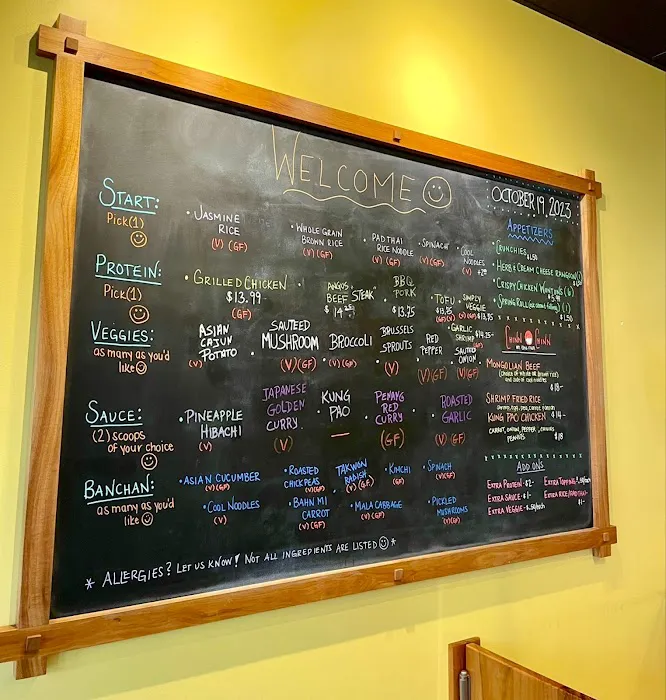 WELCOME
OCTOBER 19, 2023
START:
Pick(1)
• JASMINE
RICE
(V) (GF)
• WHOLE GRAIN
BROWN RICE
(V) (GF)
• PAD THAI
RICE NOODLE
(V) (GF)
• SPINACH
(V) (GF)
• COOL
NOODLES
(V)
PROTEIN:
Pick(1)
• GRILLED CHICKEN
$13.99
(GF)
• ANGUS
BEEF STEAK
BBQ
PORK
$13.75
• TOFU
• SIMPLY
VEGGIE
$13.75
GARLIC
SHRIMP
VEGGIES:
as many as you'd
like
ASIAN
CAJUN
POTATO
(V)
• SAUTEED
MUSHROOM
(V)(GF)
• BROCCOLI
(V)(GF)
• BRUSSELS
SPROUTS
(V)
• RED
PEPPER
(V)(GF)
• SAUTEED
ONION
(V)(GF)
SAUCE:
(2) SCOOPS
OF YOUR CHOICE
• PINEAPPLE
HIBACHI
(V)
JAPANESE
GOLDEN
CURRY
(V)
• KUNG
PAO
• PENANG
RED
CURRY
(GF)
• ROASTED
GARLIC
(V) (GF)
BANCHAN:
as many as you'd
like
• ASIAN CUCUMBER
(V)(GF)
• ROASTED
CHICKPEAS
(V)(GF)
TAKWON
RADISH
(V)(GF)
• KIMCHI
(GF)
• SPINACH
(V)(GF)
• COOL NOODLES
(V)
• BAHN MI
CARROT
(V)(GF)
• MALA CABBAGE
(V)(GF)
• PICKLED
MUSHROOMS
(V)(GF)
* ALLERGIES? LET US KNOW! NOT ALL INGREDIENTS ARE LISTED *
APPETIZERS
• CRUNCHIES
• HERB & CREAM CHEESE RANGOON
• CRISPY CHICKEN WONTONS (6)
• SPRING ROLL
$1.50
CHINN CHINN
MONGOLIAN BEEF
$18-
SHRIMP FRIED RICE
$14-
KUNG PAO CHICKEN
CARROT, ONION, PEPPER,
PEANUTS
$18
ADD ONS
EXTRA PROTEIN - $2-
EXTRA SAUCE - $1-
EXTRA VEGGIE -
EXTRA TOPPING
EXTRA RICE/PAD THAI-
$1-